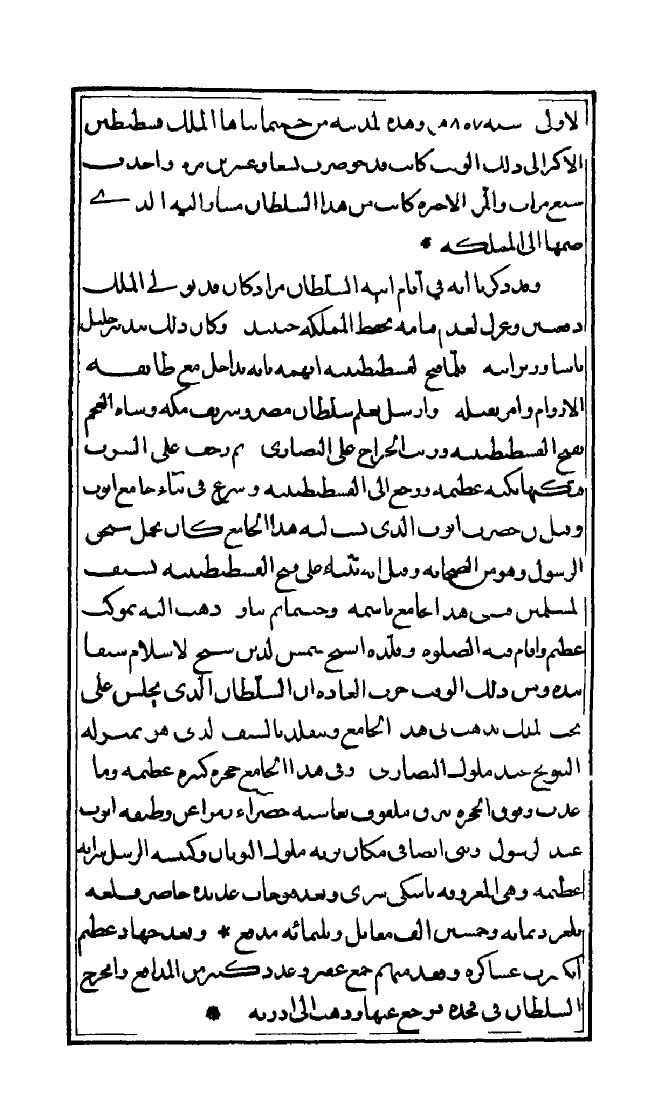 الاولى سنه ٨٥٧ وهذه المدينه من حينما بناها الملك قسطنطين
الاكبر الى ذلك الوقت كانت قد حوصرت تسعا وعشرين مره واحدت
سبع مرات والمره الاخيره كانت من هذا السلطان مشار اليه الذي
ضمها الى المملكه *
وقد ذكرنا انه في ايام ابيه السلطان مراد كان قد تولى الملك
دفعتين وعزل لعدم قيامه بحفظ المملكه حينئذ وكان ذلك بتدبير خليل
باشا وزير ابيه فلما فتح القسطنطينيه اتهمه بانه تداخل مع طايفه
الاروام وامر بقتله وارسل يعلم سلطان مصر وشريف مكه وشاه العجم
بفتح القسطنطينيه ورتب الخراج على النصارى ثم زحف على السرب
ونكبها نكبه عظيمه ورجع الى القسطنطينيه وشرع في بناء جامع ايوب
وقيل ان حضرت ايوب الذي نسب اليه هذا الجامع كان يحمل سنجق
الرسول وهو من الصحابه وقيل انه تنباء على فتح القسطنطينيه بسيف
المسلمين فبنى هذا الجامع باسمه وحينما تم بناو ذهب اليه بموكب
عظيم واقام فيه الصلوه وقلده الشيخ شمس الدين شيخ الاسلام سيفا
بيده ومن ذلك الوقت جرت العاده ان السلطان الذي يجلس على
تخت الملك يذهب الى هذا الجامع ويتقلد بالسيف الذي هو بمنزله
التتويج عند ملوك النصارى وفي هذا الجامع حجره كبيره عظيمه وما
عذب وفوق الحجره بيرق ملفوف بغاشيه خضراء رمزا عن وظيفه ايوب
عند الرسول وبنى ايضا في مكان تربه ملوك اليونان وكنيسه الرسل سرايه
عظيمه وهي المعروفه باسكي سراي وبعد فتوحات عديده حاصر قلعه
بلغراد بمايه وخمسين الف مقاتل وثلثمائه مدفع * وبعد جهاد عظيم
انكسرت عساكره وفقد منهم جمع غفير وعدد كثير من المدافع وانجرح
السلطان في فخذه فرجع عنها وذهب الى ادرنه *